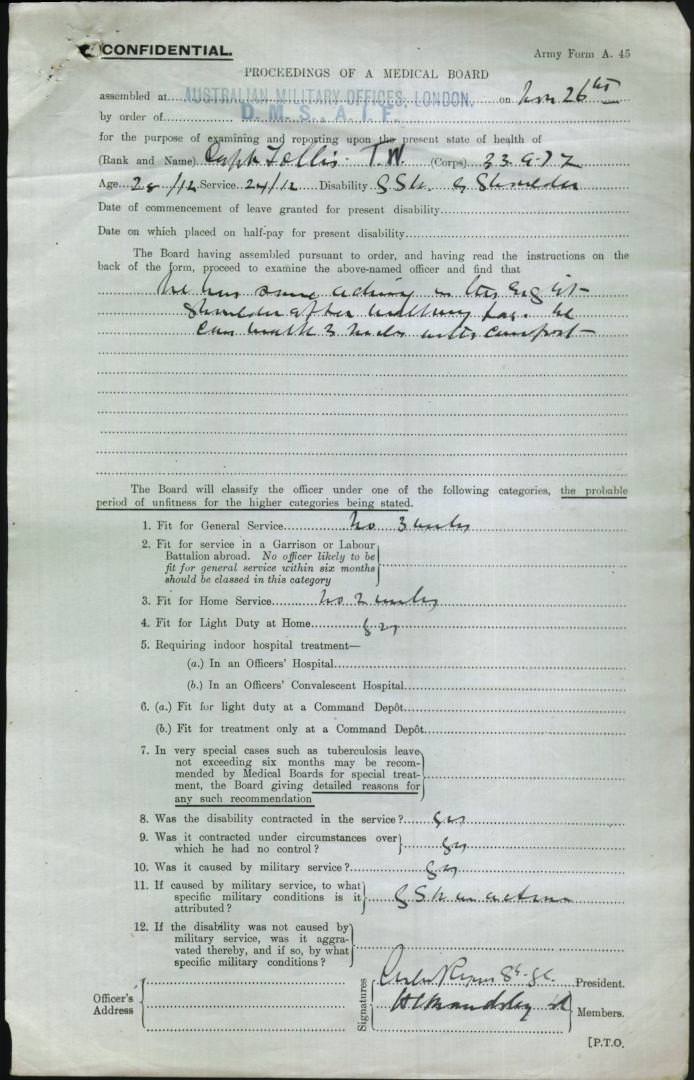 CONFIDENTIAL.
Army Form A. 45
PROCEEDINGS OF A MEDICAL BOARD
assembled at AUSTRALIAN MILITARY OFFICES, LONDON. on Nov 26th
by order of D.M.S., A.I.F.
for the purpose of examining and reporting upon the present state of health of
(Rank and Name) Capt. Follis. T.W (Corps) 33
Age 28/12 Service 24/12 Disability G.S.W. Shoulder
Date of commencement of leave granted for present disability
Date on which placed on half-pay for present disability
The Board having assembled pursuant to order, and having read the instructions on the
back of the form, proceed to examine the above-named officer and find that
he has some aching in the right
shoulder after walking far. he
can walk 3 miles with comfort
The Board will classify the officer under one of the following categories, the probable
period of unfitness for the higher categories being stated.
1. Fit for General Service No 3 mths
2. Fit for service in a Garrison or Labour
Battalion abroad. No officer likely to be
fit for general service within six months
should be classed in this category
3. Fit for Home Service No 2 mths
4. Fit for Light Duty at Home yes
5. Requiring indoor hospital treatment—
(a.) In an Officers' Hospital
(b.) In an Officers' Convalescent Hospital
6. (a.) Fit for light duty at a Command Depôt
(b.) Fit for treatment only at a Command Depôt
7. In very special cases such as tuberculosis leave
not exceeding six months may be recom-
mended by Medical Boards for special treat-
ment, the Board giving detailed reasons for
any such recommendation
8. Was the disability contracted in the service? yes
9. Was it contracted under circumstances over
which he had no control? yes
10. Was it caused by military service? yes
11. If caused by military service, to what
specific military conditions is it
attributed? G.S.W. in action
12. If the disability was not caused by
military service, was it aggra-
vated thereby, and if so, by what
specific military conditions?
Officer's
Address
Signatures
President.
H C Maudsley
Members.
[P.T.O.